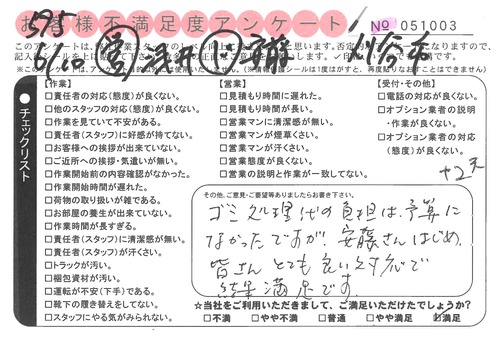 お客様不満足度アンケート
No 051003
チェックリスト
【作業】
□責任者の対応(態度)が良くない。
□他のスタッフの対応(態度)が良くない。
□作業を見ていて不安がある。
□責任者(スタッフ)に好感が持てない。
□お客様への挨拶が出来ていない。
□ご近所への挨拶・気遣いが無い。
□作業開始前の内容確認がなかった。
□作業開始時間が遅れた。
□荷物の取り扱いが雑である。
□お部屋の養生が出来ていない。
□作業時間が長すぎる。
□責任者(スタッフ)に清潔感が無い。
□責任者(スタッフ)が汗くさい。
□トラックが汚い。
□梱包資材が汚い。
□運転が不安(下手)である。
□靴下の履き替えをしてない。
□スタッフにやる気がみられない。
【営業】
□見積もり時間に遅れた。
□見積もり時間が長い。
□営業マンに清潔感が無い。
□営業マンが煙草くさい。
□営業マンが汗くさい。
□営業態度が良くない。
□営業の説明と作業が一致してない。
【受付・その他】
□電話の対応が良くない。
□オプション業者の説明
・作業が良くない。
□オプション業者の対応
(態度)が良くない。
その他、ご意見・ご要望等ありましたらお書き下さい。
ゴミ処理代の負担は、予算に
なかったですが、安藤さんはじめ、
皆さんとても良い対応で
結果満足です。
☆当社をご利用いただきまして、ご満足いただけたでしょうか?
□不満 □やや不満 □普通 □やや満足 □満足